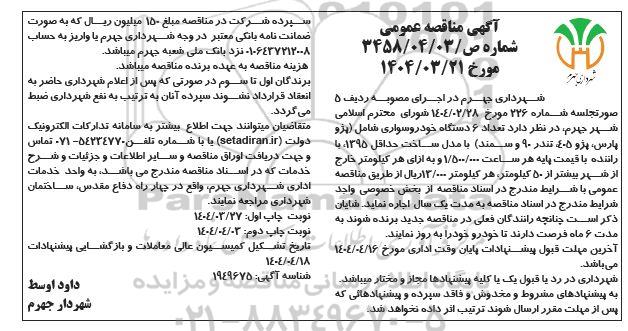 آگهی مناقصه عمومی
شماره ص/۳۴۵۸/۰۴/۰۳
مورخ ۱۴۰۴/۰۳/۲۱
شهرداری جهرم
شهرداری جهرم در اجرای مصوبه ردیف ۵
صورتجلسه شماره ۲۲۶ مورخ ۱۴۰۴/۰۲/۲۸ شورای محترم اسلامی
شهر جهرم، در نظر دارد تعداد ۶ دستگاه خودروسواری شامل (پژو
پارس، پژو ۴۰۵، تندر ۹۰ و سمند) با مدل ساخت حداقل ۱۳۹۵، با
راننده با قیمت پایه هر ساعت ۱/۵۰۰/۰۰۰ و به ازای هر کیلومتر خارج
از شهر بیشتر از ۵۰ کیلومتر، هر کیلومتر ۱۳/۰۰۰ریال از طریق مناقصه
عمومی با شرایط مندرج در اسناد مناقصه از بخش خصوصی واجد
شرایط مندرج در اسناد مناقصه به مدت یک سال اجاره نماید. شایان
ذکر است چنانچه رانندگان فعلی در مناقصه جدید برنده شوند به
مدت ۶ ماه فرصت دارند تا خودرو خود را به روز نمایند.
آخرین مهلت قبول پیشنهادات پایان وقت اداری مورخ ۱۴۰۴/۰۴/۱۶
می‌باشد.
شهرداری در رد یا قبول یک یا کلیه پیشنهادها مجاز و مختار میباشد.
به پیشنهادهای مشروط و مخدوش و فاقد سپرده و پیشنهادهائی که
پس از مهلت مقرر ارسال شوند ترتیب اثر داده نخواهد شد.
سپرده شرکت در مناقصه مبلغ ۱۵۰ میلیون ریال که به صورت
ضمانت نامه بانکی معتبر در وجه شهرداری جهرم یا واریز به حساب
۰۱۰۶۴۳۷۲۱۲۰۰۸ نزد بانک ملی شعبه جهرم میباشد.
هزینه مناقصه به عهده برنده مناقصه میباشد.
برندگان اول تا سوم در صورتی که پس از اعلام شهرداری حاضر به
انعقاد قرارداد نشوند سپرده آنان به ترتیب به نفع شهرداری ضبط
می‌گردد.
متقاضیان میتوانند جهت اطلاع بیشتر به سامانه تدارکات الکترونیک
دولت (setadiran.ir) یا با شماره تلفن۵۴۲۳۴۷۷۰-۰۷۱ تماس
و جهت دریافت اوراق مناقصه و سایر اطلاعات و جزئیات و شرح
خدمات که در اسناد مناقصه مندرج می باشد، به واحد خدمات
اداری شهرداری جهرم، واقع در چهار راه دفاع مقدس، ساختمان
شهرداری مراجعه نمایند.
نوبت چاپ اول: ۱۴۰۴/۰۳/۲۷
نوبت چاپ دوم: ۱۴۰۴/۰۴/۰۳
تاریخ تشکیل کمیسیون عالی معاملات و بازگشایی پیشنهادات
۱۴۰۴/۰۴/۱۸
شناسه آگهی: ۱۹۴۹۶۷۵
داود اوسط
شهردار جهرم
۰۲۱-۸۸۳۴۹۶۷۰-۵